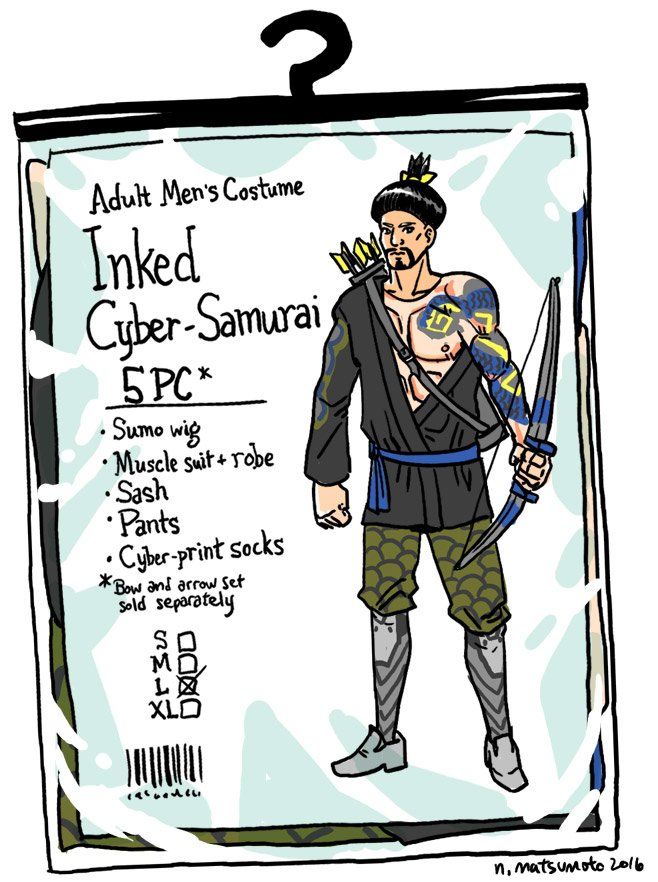 Adult Men's Costume
Inked
Cyber-Samurai
5PC*
• Sumo wig
• Muscle suit + robe
• Sash
• Pants
• Cyber-print socks
*Bow and arrow set
sold separately
S
M
L
XL
n. matsumoto 2016